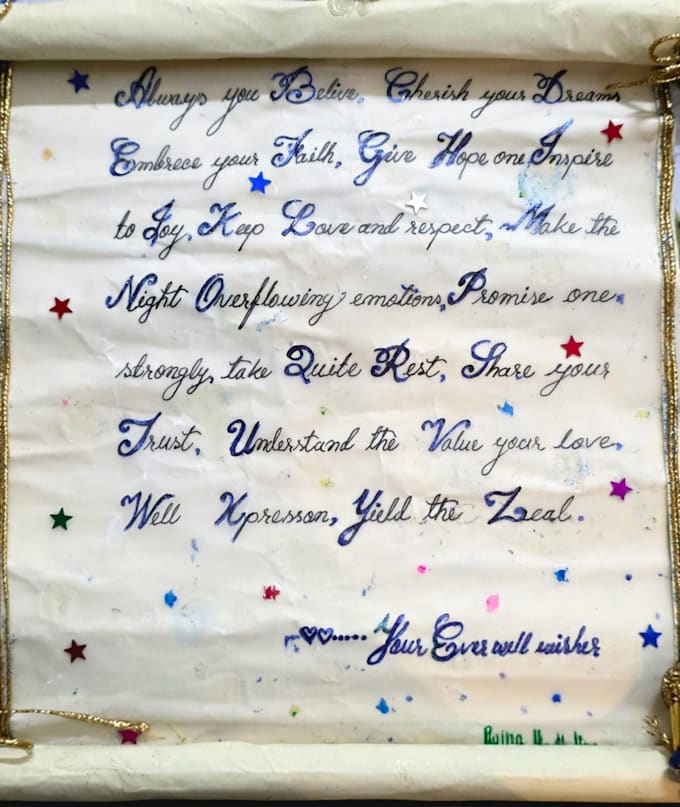 Always you Belive, Cherish your Dreams
Embrece your Faith, Give Hope one Inspire
to Joy, Keep Love and respect, Make the
Night Overflowing emotions, Promise one
strongly, take Quite Rest, Share your
Trust, Understand the Value your love,
Well Xpresson, Yield the Zeal.
♡♡..... Your Ever well wisher